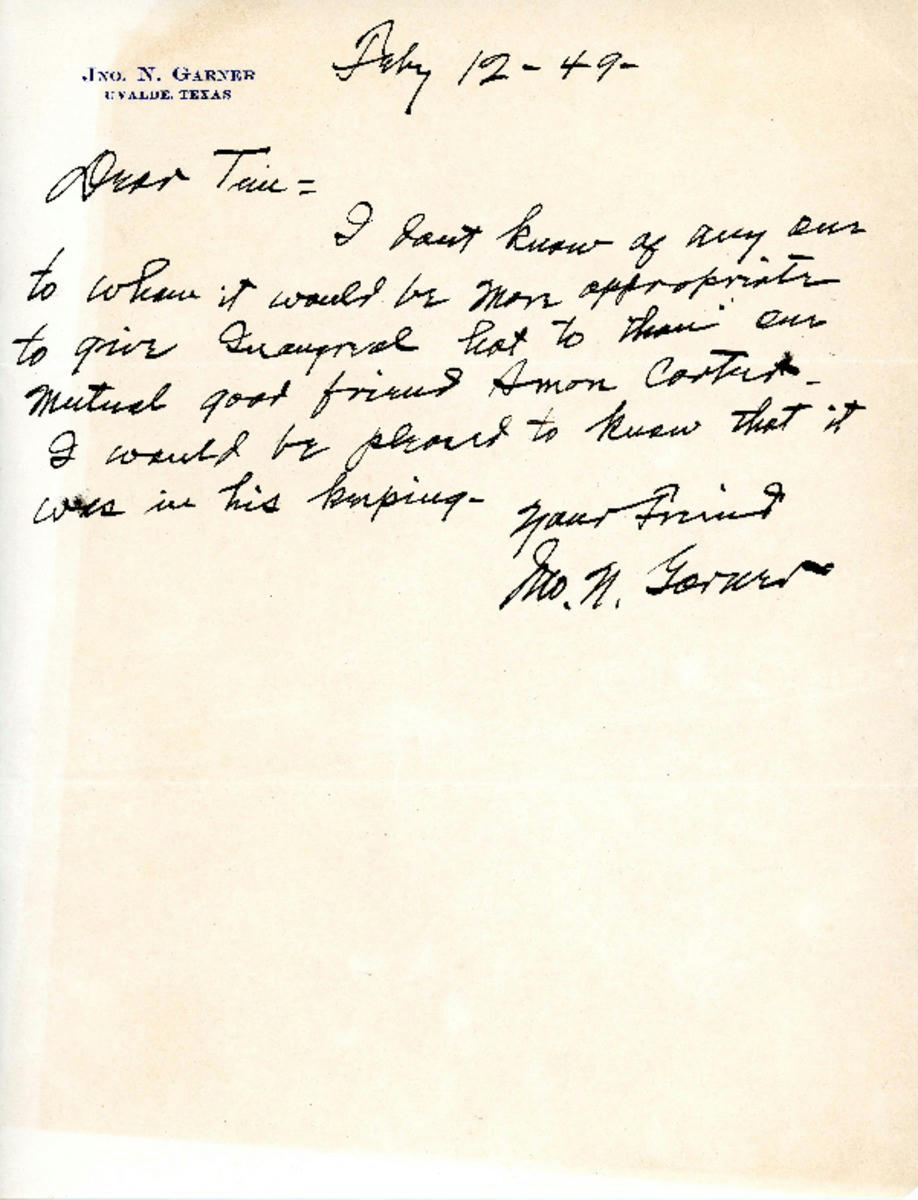 JNO. N. GARNER
UVALDE, TEXAS
Feby 12-49-
Dear Tim=
I dont know of any one
to whom it would be more appropriate
to give Inaugural hat to than our
Mutual good friend Amon Carter-
I would be pleased to know that it
was in his keeping-
Your Friend
Jno. N. Garner